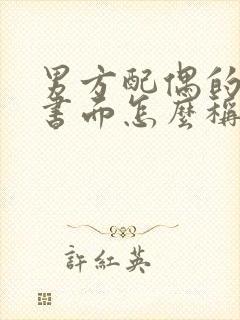 男方配偶的
書面怎麼稱
許紅英